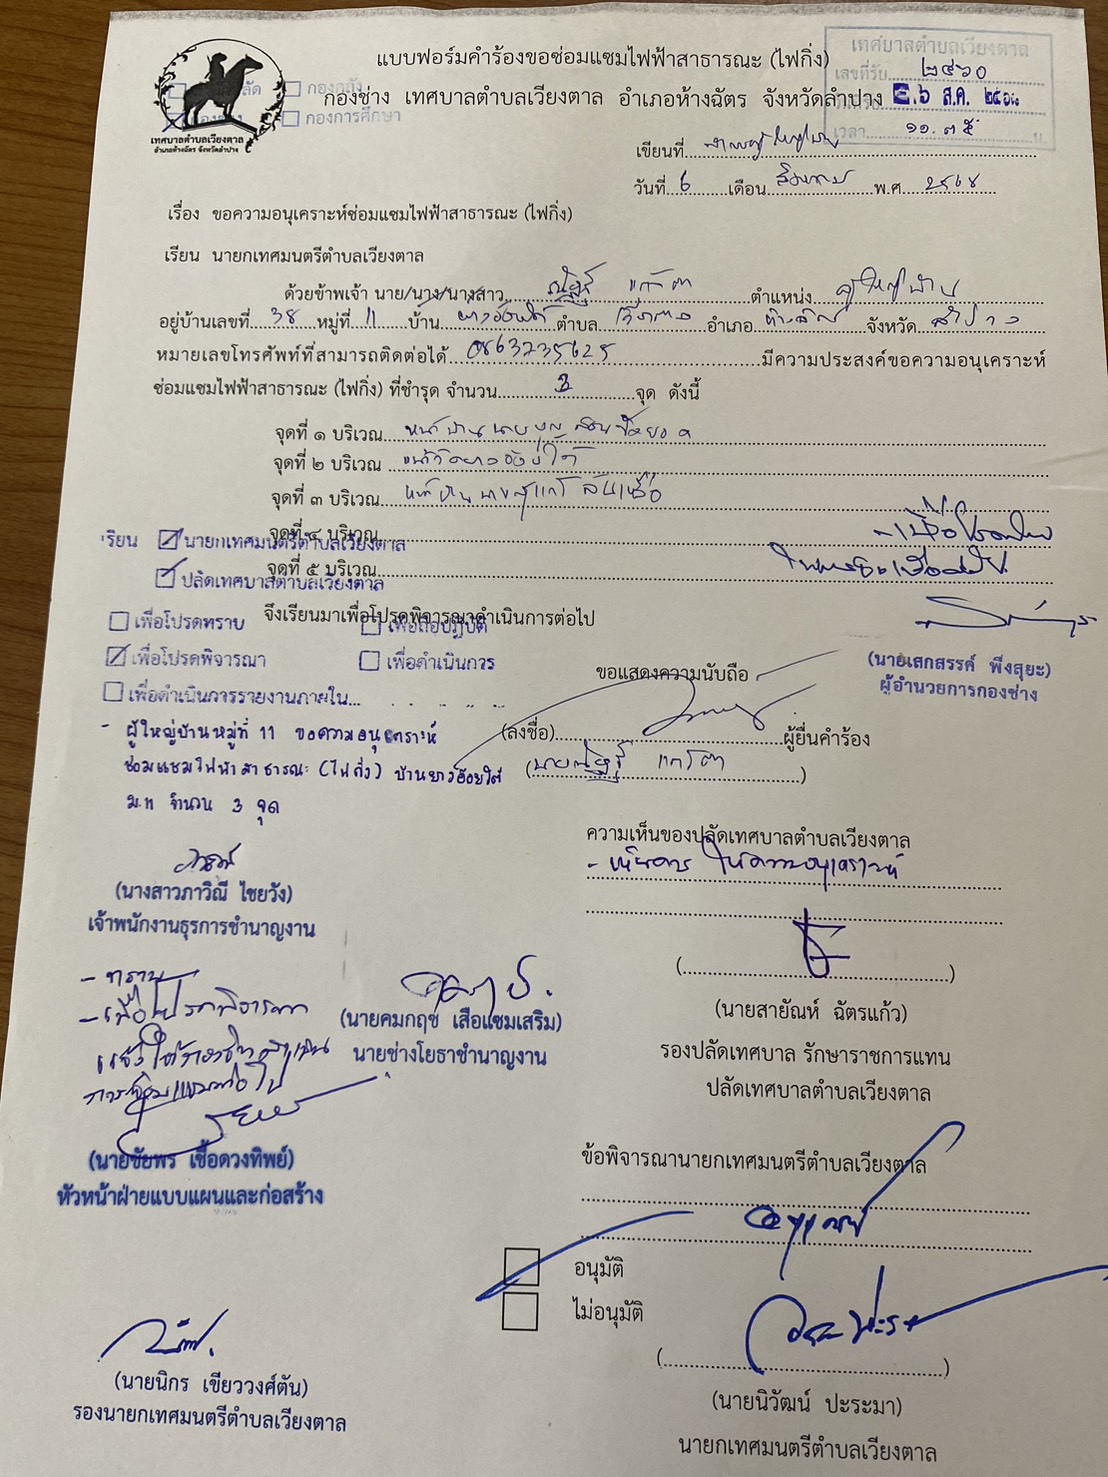 แบบฟอร์มคำร้องขอซ่อมแซมไฟฟ้าสาธารณะ (ไฟกิ่ง)
กองช่าง เทศบาลตำบลเวียงตาล อำเภอห้างฉัตร จังหวัดลำปาง
เทศบาลตำบลเวียงตาล
เลขที่รับ ๒๔๖๐
๖ ส.ค. ๒๕๖๘
เวลา ๑๑.๓๕ น.
กองคลัง
กองการศึกษา
เทศบาลตำบลเวียงตาล
อำเภอห้างฉัตร จังหวัดลำปาง
เขียนที่
วันที่ 6 เดือน สิงหาคม พ.ศ. 2568
เรื่อง ขอความอนุเคราะห์ซ่อมแซมไฟฟ้าสาธารณะ (ไฟกิ่ง)
เรียน นายกเทศมนตรีตำบลเวียงตาล
ด้วยข้าพเจ้า นาย/นาง/นางสาว ณัฐฐ์ แก้วตา ตำแหน่ง ผู้ใหญ่บ้าน
อยู่บ้านเลขที่ 38 หมู่ที่ 11 บ้าน ยางอ้อยใต้ ตำบล เวียงตาล อำเภอ ห้างฉัตร จังหวัด ลำปาง
หมายเลขโทรศัพท์ที่สามารถติดต่อได้ 0863735625 มีความประสงค์ขอความอนุเคราะห์
ซ่อมแซมไฟฟ้าสาธารณะ (ไฟกิ่ง) ที่ชำรุด จำนวน 3 จุด ดังนี้
จุดที่ ๑ บริเวณ หน้าบ้านนาย
จุดที่ ๒ บริเวณ หน้าวัดยางอ้อยใต้
จุดที่ ๓ บริเวณ หน้าบ้าน
จุดที่ ๔ บริเวณ
จุดที่ ๕ บริเวณ
เรียน นายกเทศมนตรีตำบลเวียงตาล
ปลัดเทศบาลตำบลเวียงตาล
จึงเรียนมาเพื่อโปรดพิจารณาดำเนินการต่อไป
เพื่อโปรดทราบ เพื่อถือปฏิบัติ
เพื่อโปรดพิจารณา เพื่อดำเนินการ
เพื่อดำเนินการรายงานภายใน...
- เพื่อโปรด
(นายเสกสรรค์ พึงสุยะ)
ผู้อำนวยการกองช่าง
ขอแสดงความนับถือ
(ลงชื่อ) ผู้ยื่นคำร้อง
(นายณัฐฐ์ แก้วตา)
- ผู้ใหญ่บ้านหมู่ที่ 11 ขอความอนุเคราะห์
ซ่อมแซมไฟฟ้าสาธารณะ (ไฟกิ่ง) บ้านยางอ้อยใต้
ม.11 จำนวน 3 จุด
(นางสาวภาวิณี ไชยวัง)
เจ้าพนักงานธุรการชำนาญงาน
ความเห็นของปลัดเทศบาลตำบลเวียงตาล
- เห็นควรให้ความอนุเคราะห์
(นายสายัณห์ ฉัตรแก้ว)
รองปลัดเทศบาล รักษาราชการแทน
ปลัดเทศบาลตำบลเวียงตาล
- ทราบ
- เพื่อโปรดพิจารณา
(นายคมกฤช เสือแซมเสริม)
นายช่างโยธาชำนาญงาน
(นายชัยพร เชื้อดวงทิพย์)
หัวหน้าฝ่ายแบบแผนและก่อสร้าง
ข้อพิจารณานายกเทศมนตรีตำบลเวียงตาล
อนุเคราะห์
อนุมัติ
ไม่อนุมัติ
(นายนิวัฒน์ ปะระมา)
นายกเทศมนตรีตำบลเวียงตาล
(นายนิกร เขียววงศ์ตัน)
รองนายกเทศมนตรีตำบลเวียงตาล